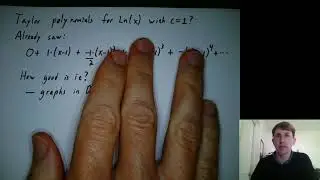 Taylor polynomials for Ln(x) with c=1?
Already saw:
0 + 1·(x-1) + -1/2·(x-1)² + )³ + - )⁴ + ···
How good is it?
— graphs in D